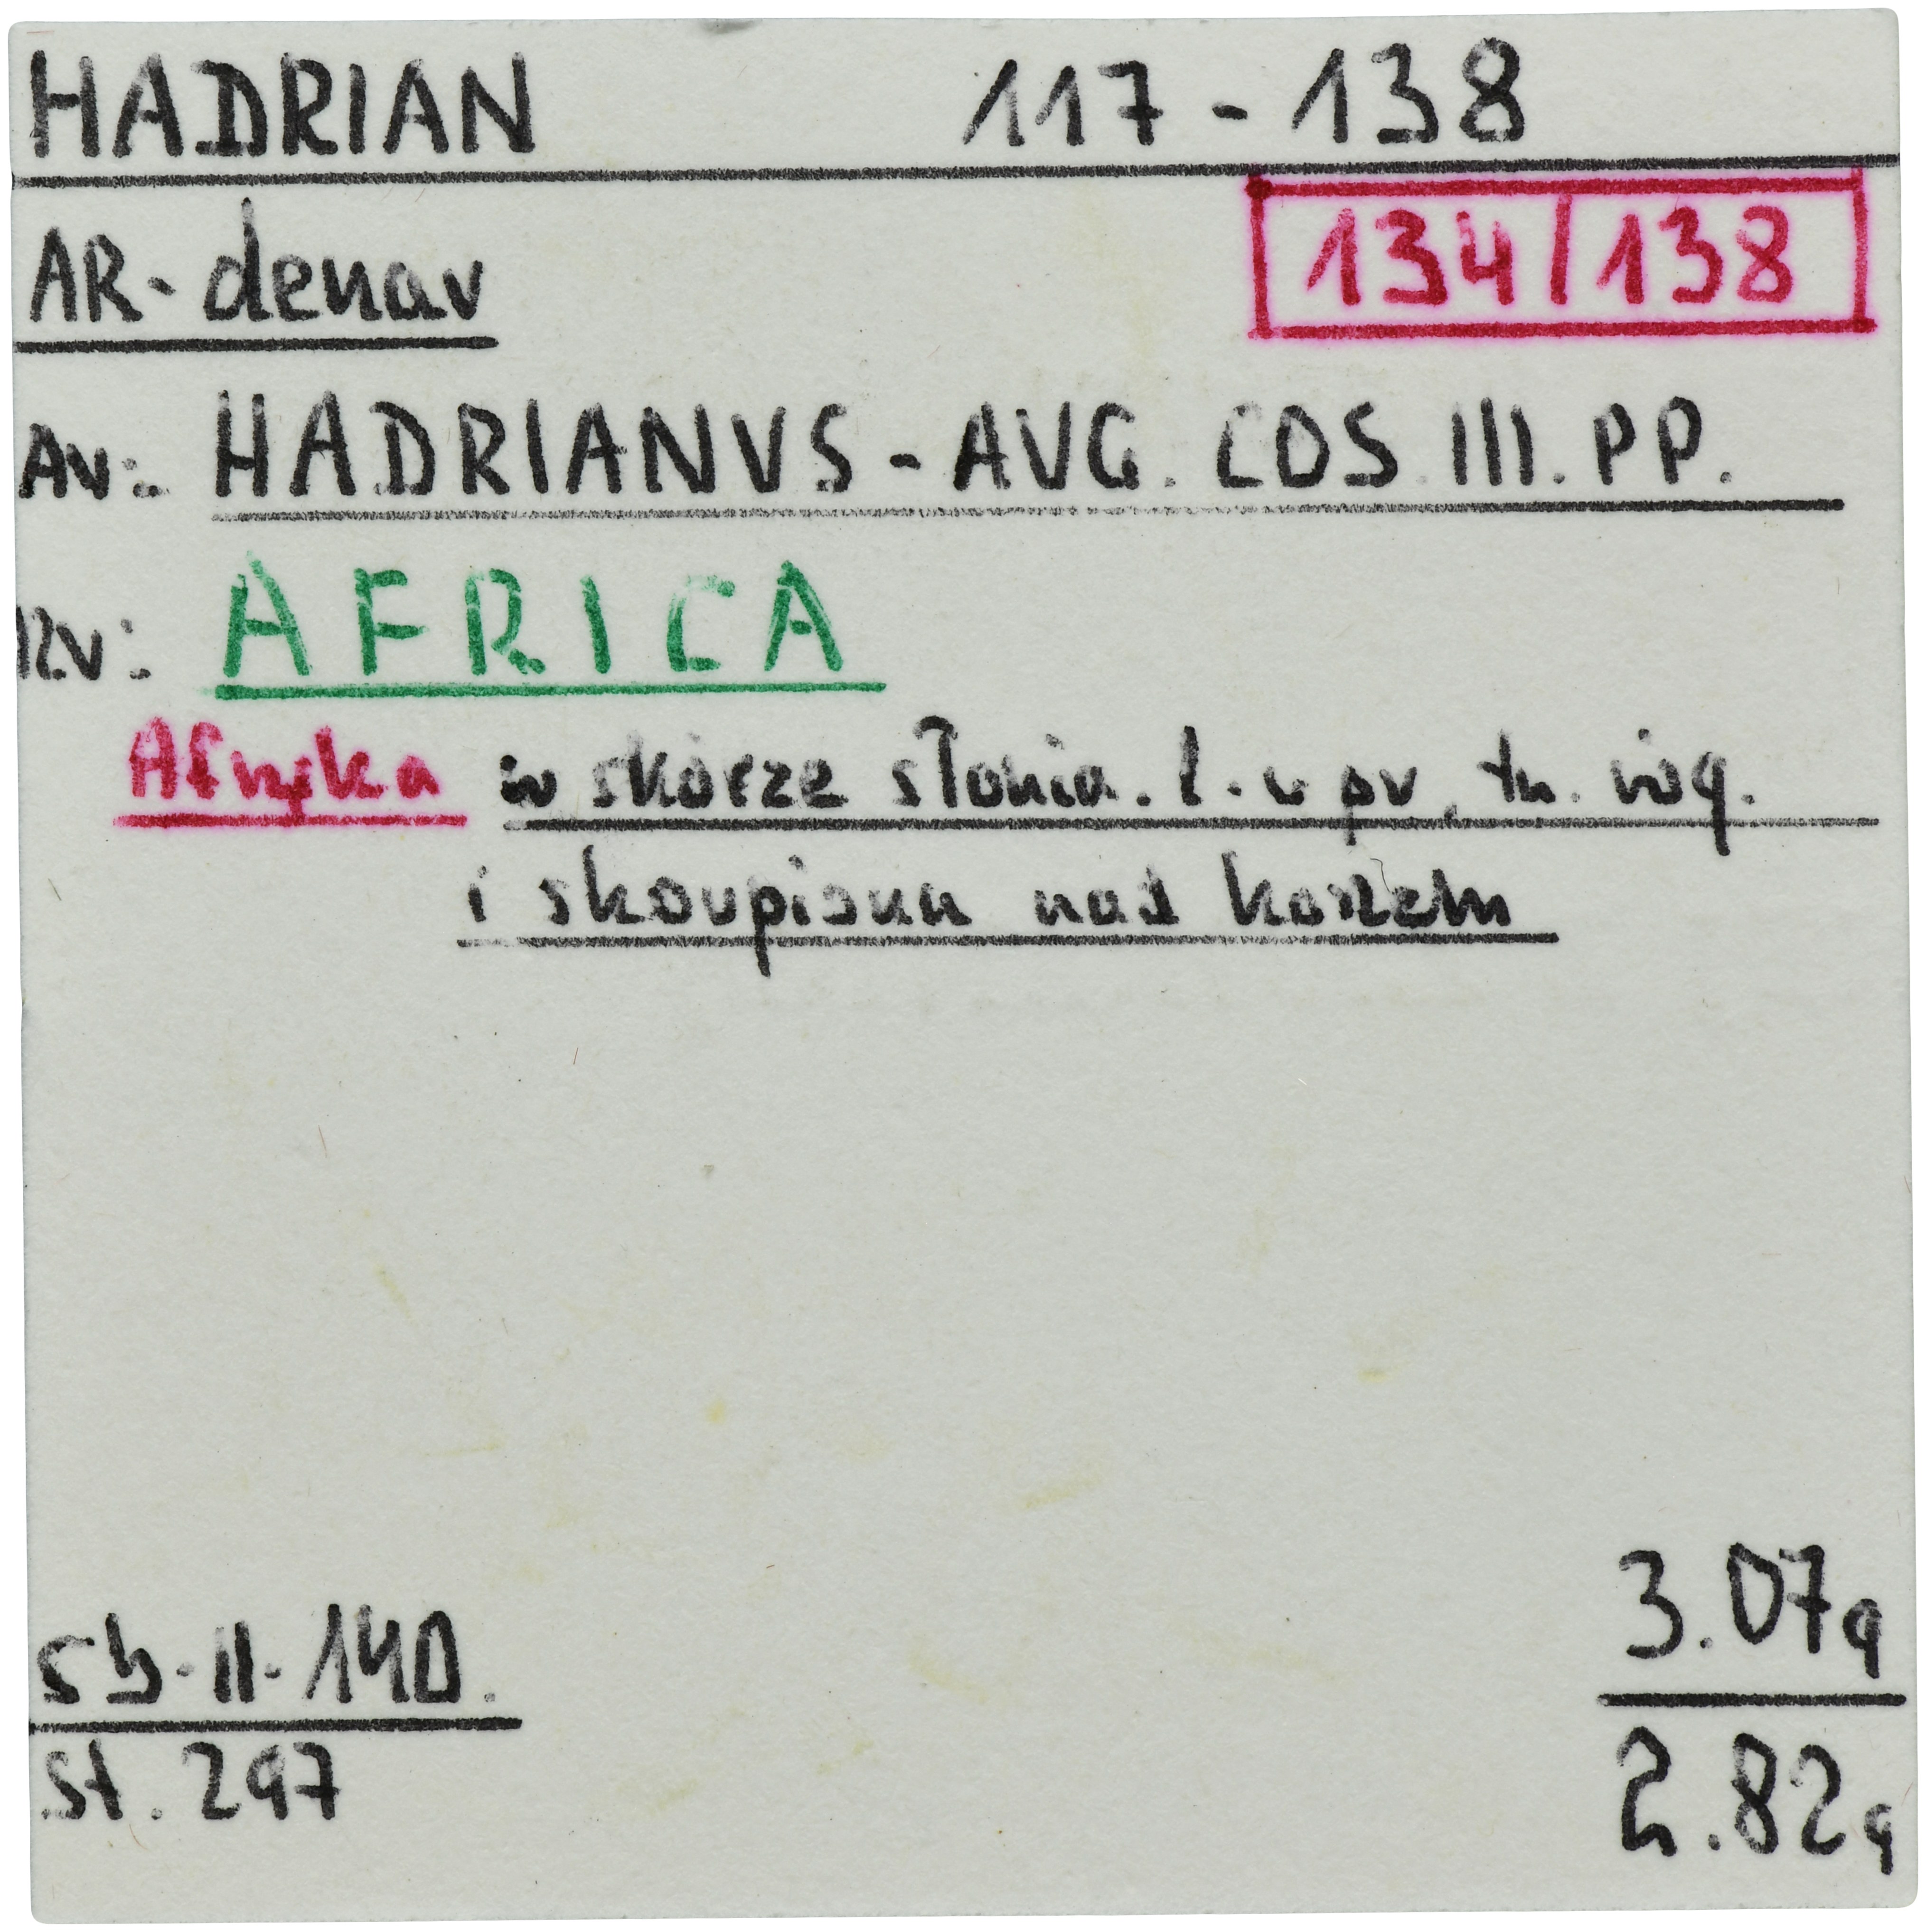 HADRIAN 117-138
AR-denar
134/138
Av: HADRIANVS-AVG. COS III. PP.
Rv: AFRICA
Afryka w skórze słonia. l. w pr, tn. róg.
i skorpiona nad koszem
Sb-II-140.
st. 297
3.07g
2.82g